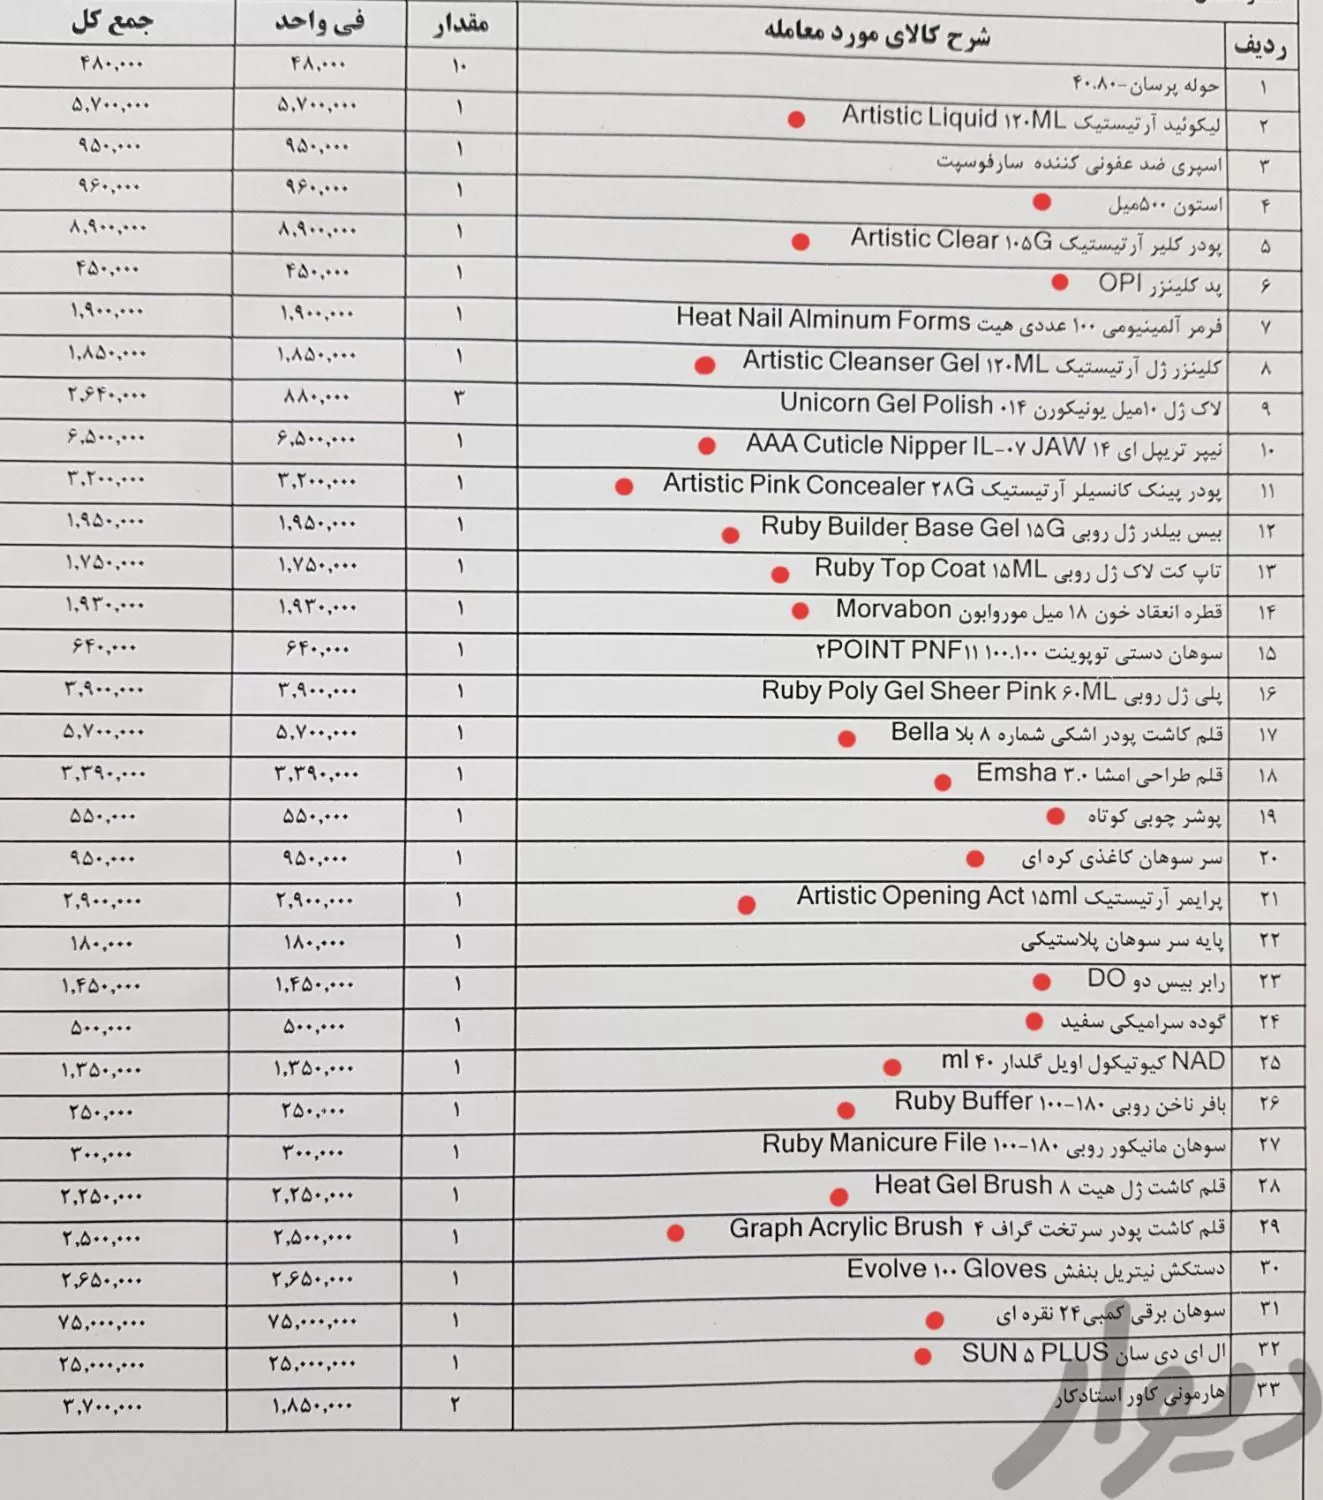 ردیف شرح کالای مورد معامله مقدار فی واحد جمع کل
۱ حوله پرسان-۴۰.۸۰ ۱۰ ۴۸,۰۰۰ ۴۸۰,۰۰۰
۲ لیکوئید آرتیستیک Artistic Liquid ۱۲۰ML ۱ ۵,۷۰۰,۰۰۰ ۵,۷۰۰,۰۰۰
۳ اسپری ضد عفونی کننده سارفوسپت ۱ ۹۵۰,۰۰۰ ۹۵۰,۰۰۰
۴ استون ۵۰۰میل ۱ ۹۶۰,۰۰۰ ۹۶۰,۰۰۰
۵ پودر کلیر آرتیستیک Artistic Clear ۱۰۵G ۱ ۸,۹۰۰,۰۰۰ ۸,۹۰۰,۰۰۰
۶ پد کلینزر OPI ۱ ۴۵۰,۰۰۰ ۴۵۰,۰۰۰
۷ فرمر آلمینیومی ۱۰۰ عددی هیت Heat Nail Alminum Forms ۱ ۱,۹۰۰,۰۰۰ ۱,۹۰۰,۰۰۰
۸ کلینزر ژل آرتیستیک Artistic Cleanser Gel ۱۲۰ML ۱ ۱,۸۵۰,۰۰۰ ۱,۸۵۰,۰۰۰
۹ لاک ژل ۱۰میل یونیکورن ۰۱۴ Unicorn Gel Polish ۳ ۸۸۰,۰۰۰ ۲,۶۴۰,۰۰۰
۱۰ نیپر تریپل ای ۱۴ AAA Cuticle Nipper IL-۰۷ JAW ۱ ۶,۵۰۰,۰۰۰ ۶,۵۰۰,۰۰۰
۱۱ پودر پینک کانسیلر آرتیستیک Artistic Pink Concealer ۲۸G ۱ ۳,۲۰۰,۰۰۰ ۳,۲۰۰,۰۰۰
۱۲ بیس بیلدر ژل روبی Ruby Builder Base Gel ۱۵G ۱ ۱,۹۵۰,۰۰۰ ۱,۹۵۰,۰۰۰
۱۳ تاپ کت لاک ژل روبی Ruby Top Coat ۱۵ML ۱ ۱,۷۵۰,۰۰۰ ۱,۷۵۰,۰۰۰
۱۴ قطره انعقاد خون ۱۸ میل موروابون Morvabon ۱ ۱,۹۳۰,۰۰۰ ۱,۹۳۰,۰۰۰
۱۵ سوهان دستی توپوینت ۱۰۰.۱۰۰ ۲POINT PNF۱۱ ۱ ۶۴۰,۰۰۰ ۶۴۰,۰۰۰
۱۶ پلی ژل روبی Ruby Poly Gel Sheer Pink ۶۰ML ۱ ۳,۹۰۰,۰۰۰ ۳,۹۰۰,۰۰۰
۱۷ قلم کاشت پودر اشکی شماره ۸ بلا Bella ۱ ۵,۷۰۰,۰۰۰ ۵,۷۰۰,۰۰۰
۱۸ قلم طراحی امشا ۳.۰ Emsha ۱ ۳,۳۹۰,۰۰۰ ۳,۳۹۰,۰۰۰
۱۹ پوشر چوبی کوتاه ۱ ۵۵۰,۰۰۰ ۵۵۰,۰۰۰
۲۰ سر سوهان کاغذی کره ای ۱ ۹۵۰,۰۰۰ ۹۵۰,۰۰۰
۲۱ پرایمر آرتیستیک Artistic Opening Act ۱۵ml ۱ ۲,۹۰۰,۰۰۰ ۲,۹۰۰,۰۰۰
۲۲ پایه سر سوهان پلاستیکی ۱ ۱۸۰,۰۰۰ ۱۸۰,۰۰۰
۲۳ رابر بیس دو DO ۱ ۱,۴۵۰,۰۰۰ ۱,۴۵۰,۰۰۰
۲۴ گوده سرامیکی سفید ۱ ۵۰۰,۰۰۰ ۵۰۰,۰۰۰
۲۵ NAD کیوتیکول اویل گلدار ۴۰ ml ۱ ۱,۳۵۰,۰۰۰ ۱,۳۵۰,۰۰۰
۲۶ بافر ناخن روبی ۱۸۰-۱۰۰ Ruby Buffer ۱ ۲۵۰,۰۰۰ ۲۵۰,۰۰۰
۲۷ سوهان مانیکور روبی ۱۸۰-۱۰۰ Ruby Manicure File ۱ ۳۰۰,۰۰۰ ۳۰۰,۰۰۰
۲۸ قلم کاشت ژل هیت ۸ Heat Gel Brush ۱ ۲,۲۵۰,۰۰۰ ۲,۲۵۰,۰۰۰
۲۹ قلم کاشت پودر سرتخت گراف ۴ Graph Acrylic Brush ۱ ۲,۵۰۰,۰۰۰ ۲,۵۰۰,۰۰۰
۳۰ دستکش نیتریل بنفش Evolve ۱۰۰ Gloves ۱ ۲,۶۵۰,۰۰۰ ۲,۶۵۰,۰۰۰
۳۱ سوهان برقی کمبی۲۴ نقره ای ۱ ۷۵,۰۰۰,۰۰۰ ۷۵,۰۰۰,۰۰۰
۳۲ ال ای دی سان SUN ۵ PLUS ۱ ۲۵,۰۰۰,۰۰۰ ۲۵,۰۰۰,۰۰۰
۳۳ هارمونی کاور استادکار ۲ ۱,۸۵۰,۰۰۰ ۳,۷۰۰,۰۰۰
دیوار